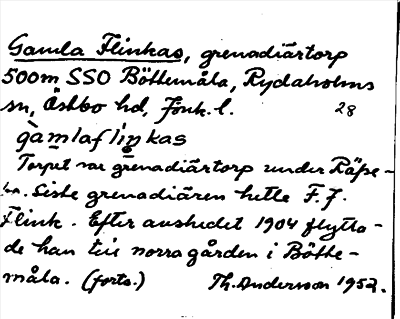 Gamla Flinkas, grenadiärtorp
500m SSO Böttemåla, Rydaholms
sn, Östbo hd, Jönk. l. 28
gamlaflinkas
Torpet var grenadiärtorp under Räpe-
bo. Siste grenadiären hette F. J.
Flink. Efter avskedet 1904 flytta-
de han till norra gården i Bötte-
måla. (forts.) Th. Andersson 1952.